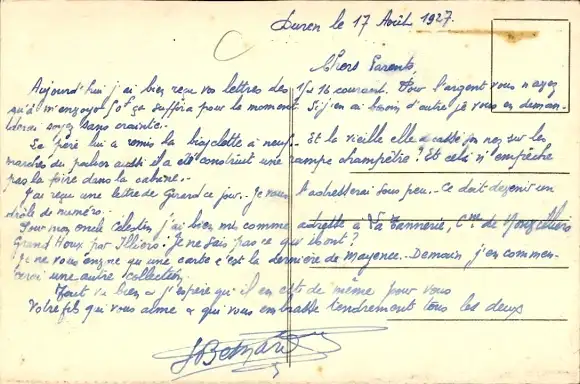 Duren le 17 Août 1927.
Chers Parents,
Aujourd'hui j'ai bien reçu vos lettres des 15 et 16 courant. Pour l'argent vous n'avez
qu'à m'envoyer 50f ça suffira pour le moment. Si j'en ai besoin d'autre je vous en deman-
derai soyez sans crainte.
Le père lui a remis la bicyclette à neuf. Et la vieille elle a cassé son nez sur les
marches du aussi il a été construit une rampe champêtre? Et cela n'empêche
pas la foire dans la cabane.
J'ai reçu une lettre de Girard ce jour. Je vous l'adresserai sous peu. Ce doit devenir un
drôle de numéro.
Pour mon oncle Célestin j'ai bien mis comme adresse à La Tannerie, Cne de
Grand Houx par Illiers. Je ne sais pas ce qui
Je ne vous envoie qu'une carte c'est la dernière de Mayence. Demain j'en commen-
cerai une autre collection.
Tout va bien et j'espère qu'il en est de même pour vous
Votre fils qui vous aime & qui vous embrasse tendrement tous les deux